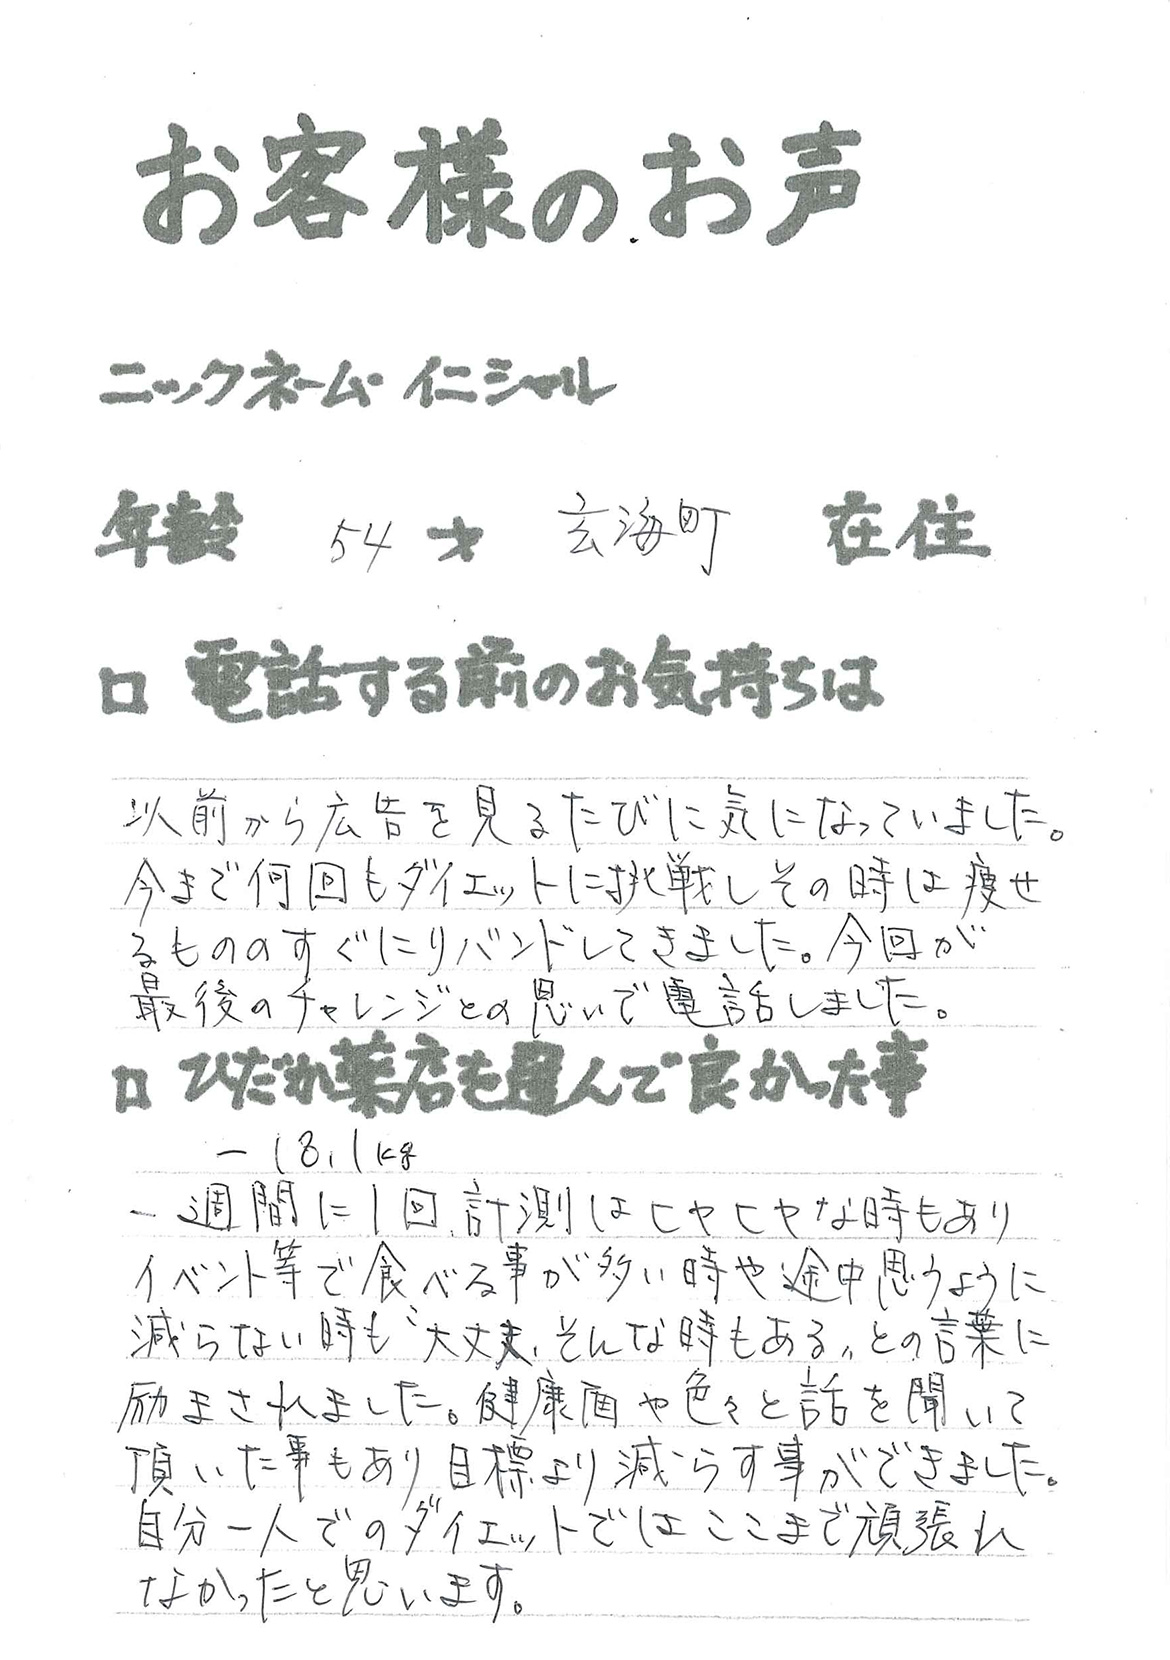 お客様のお声
ニックネーム・イニシャル
年齢 54 才 玄海町 在住
□ 電話する前のお気持ちは
以前から広告を見るたびに気になっていました。
今まで何回もダイエットに挑戦しその時は痩せ
るもののすぐにリバンドしてきました。今回が
最後のチャレンジとの思いで電話しました。
□ ひだか薬店を選んで良かった事
－18.1kg
一週間に1回、計測はヒヤヒヤな時もあり
イベント等で食べる事が多い時や途中思うように
減らない時も〝大丈夫、そんな時もある〟との言葉に
励まされました。健康面や色々と話を聞いて
頂いた事もあり目標より減らす事ができました。
自分一人でのダイエットではここまで頑張れ
なかったと思います。